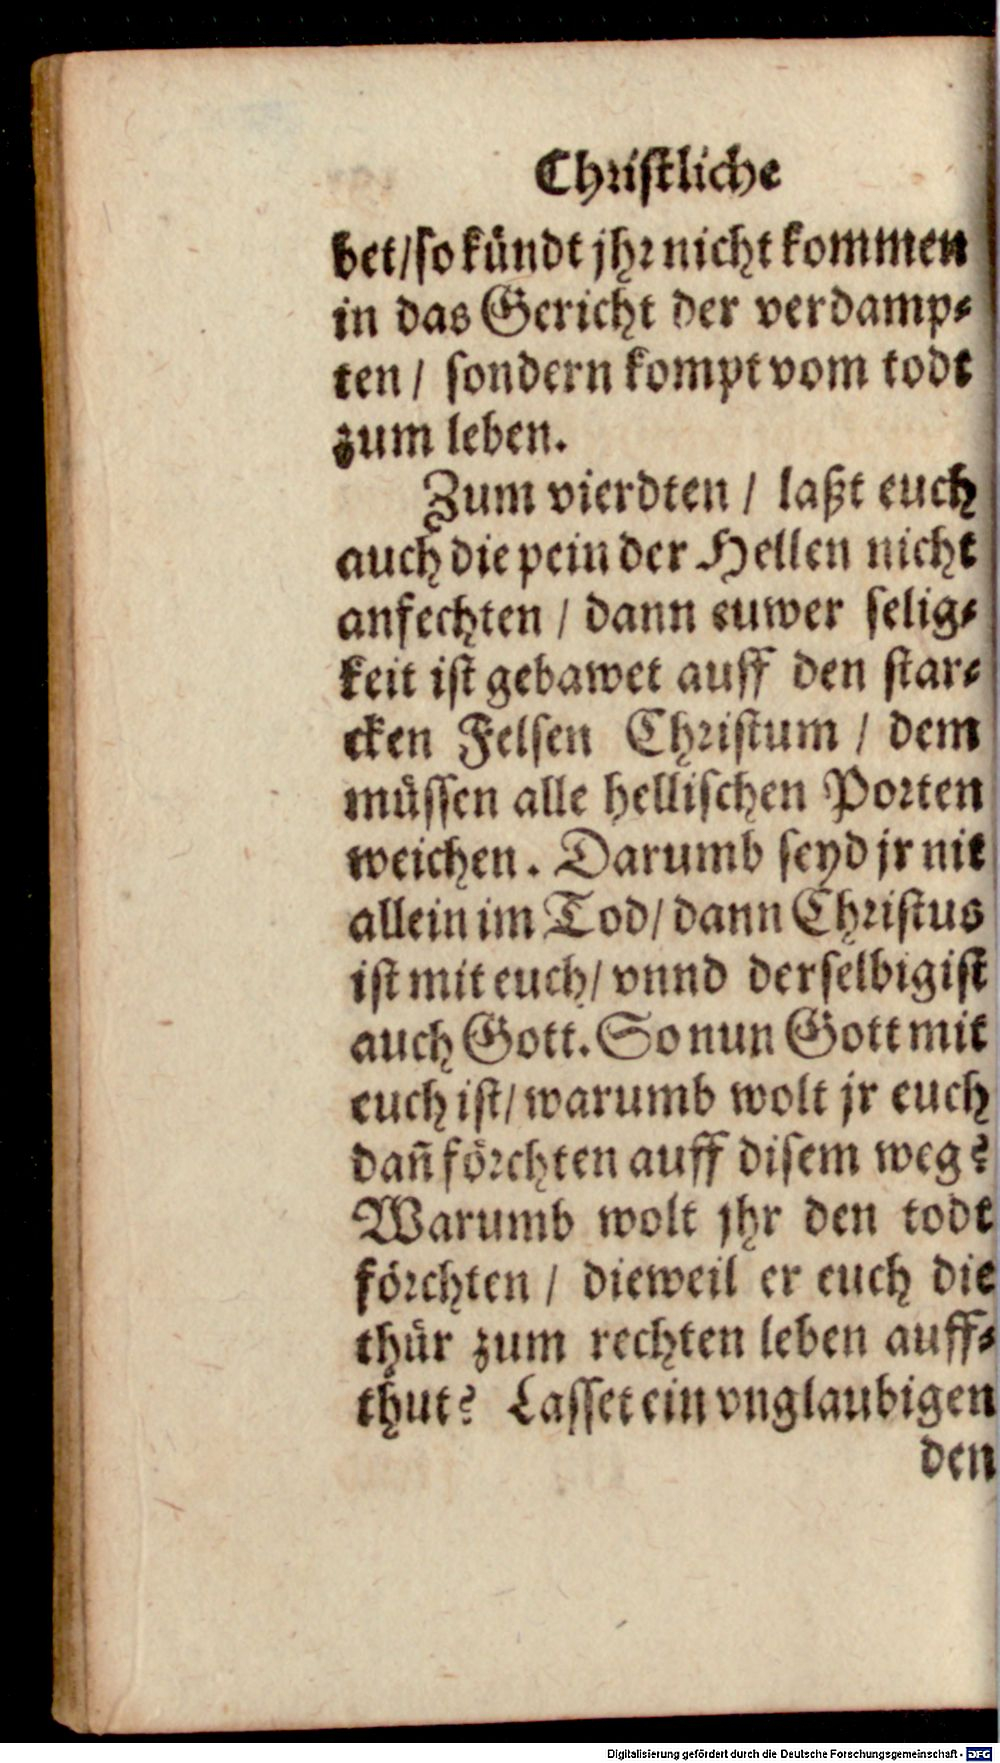 Christliche
bet/so kündt jhr nicht kommen
in das Gericht der verdamp-
ten / sondern kompt vom todt
zum leben.
Zum vierdten / laßt euch
auch die pein der Hellen nicht
anfechten / dann euwer selig-
keit ist gebawet auff den star-
cken Felsen Christum / dem
müssen alle hellischen Porten
weichen. Darumb seyd jr nit
allein im Tod/ dann Christus
ist mit euch/ vnnd derselbig ist
auch Gott. So nun Gott mit
euch ist/ warumb wolt jr euch
dañ förchten auff disem weg?
Warumb wolt jhr den todt
förchten / dieweil er euch die
thür zum rechten leben auff-
thut? Lasset ein vnglaubigen
den
Digitalisierung gefördert durch die Deutsche Forschungsgemeinschaft - DFG